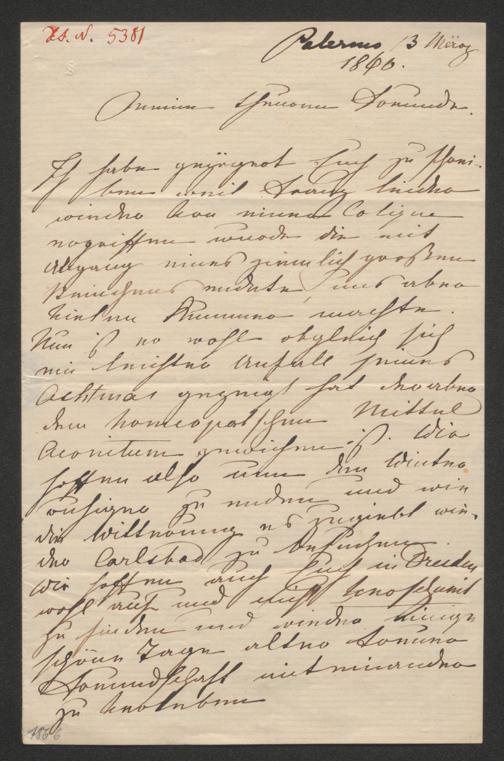 Hs. N. 5381
Palermo 13 März
1866.
Meine theuren Freunde.
Ich habe gezögert Euch zu schrei-
ben weil Franz leider
wieder von einer Colique
ergriffen wurde die mit
Abgang eines ziemlich großen
Steinchens endete, uns aber
vielen Kummer machte.
Nun ist er wohl obgleich sich
ein leichter Anfall seines
Asthmas gezeigt hat der aber
dem homeopatschen Mittel
Aconitum gewichen ist. Wir
hoffen also nun den Winter
ruhiger zu enden und wie
die Witterung es zugiebt wie-
der Carlsbad zu besuchen
Wir hoffen auch Euch in Dresden
wohl auf und nicht verschneit
zu finden und wieder einige
schöne Tage alter treuer
Freundschaft miteinander
zu verleben
1866